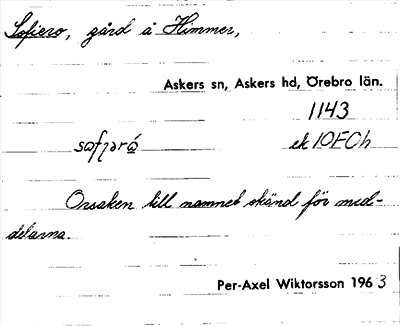 Sofiero, gård å Himmer,
Askers sn, Askers hd, Örebro län.
1143
ek 10F0h
Orsaken till namnet skänd för med-
delarna.
Per-Axel Wiktorsson 1963